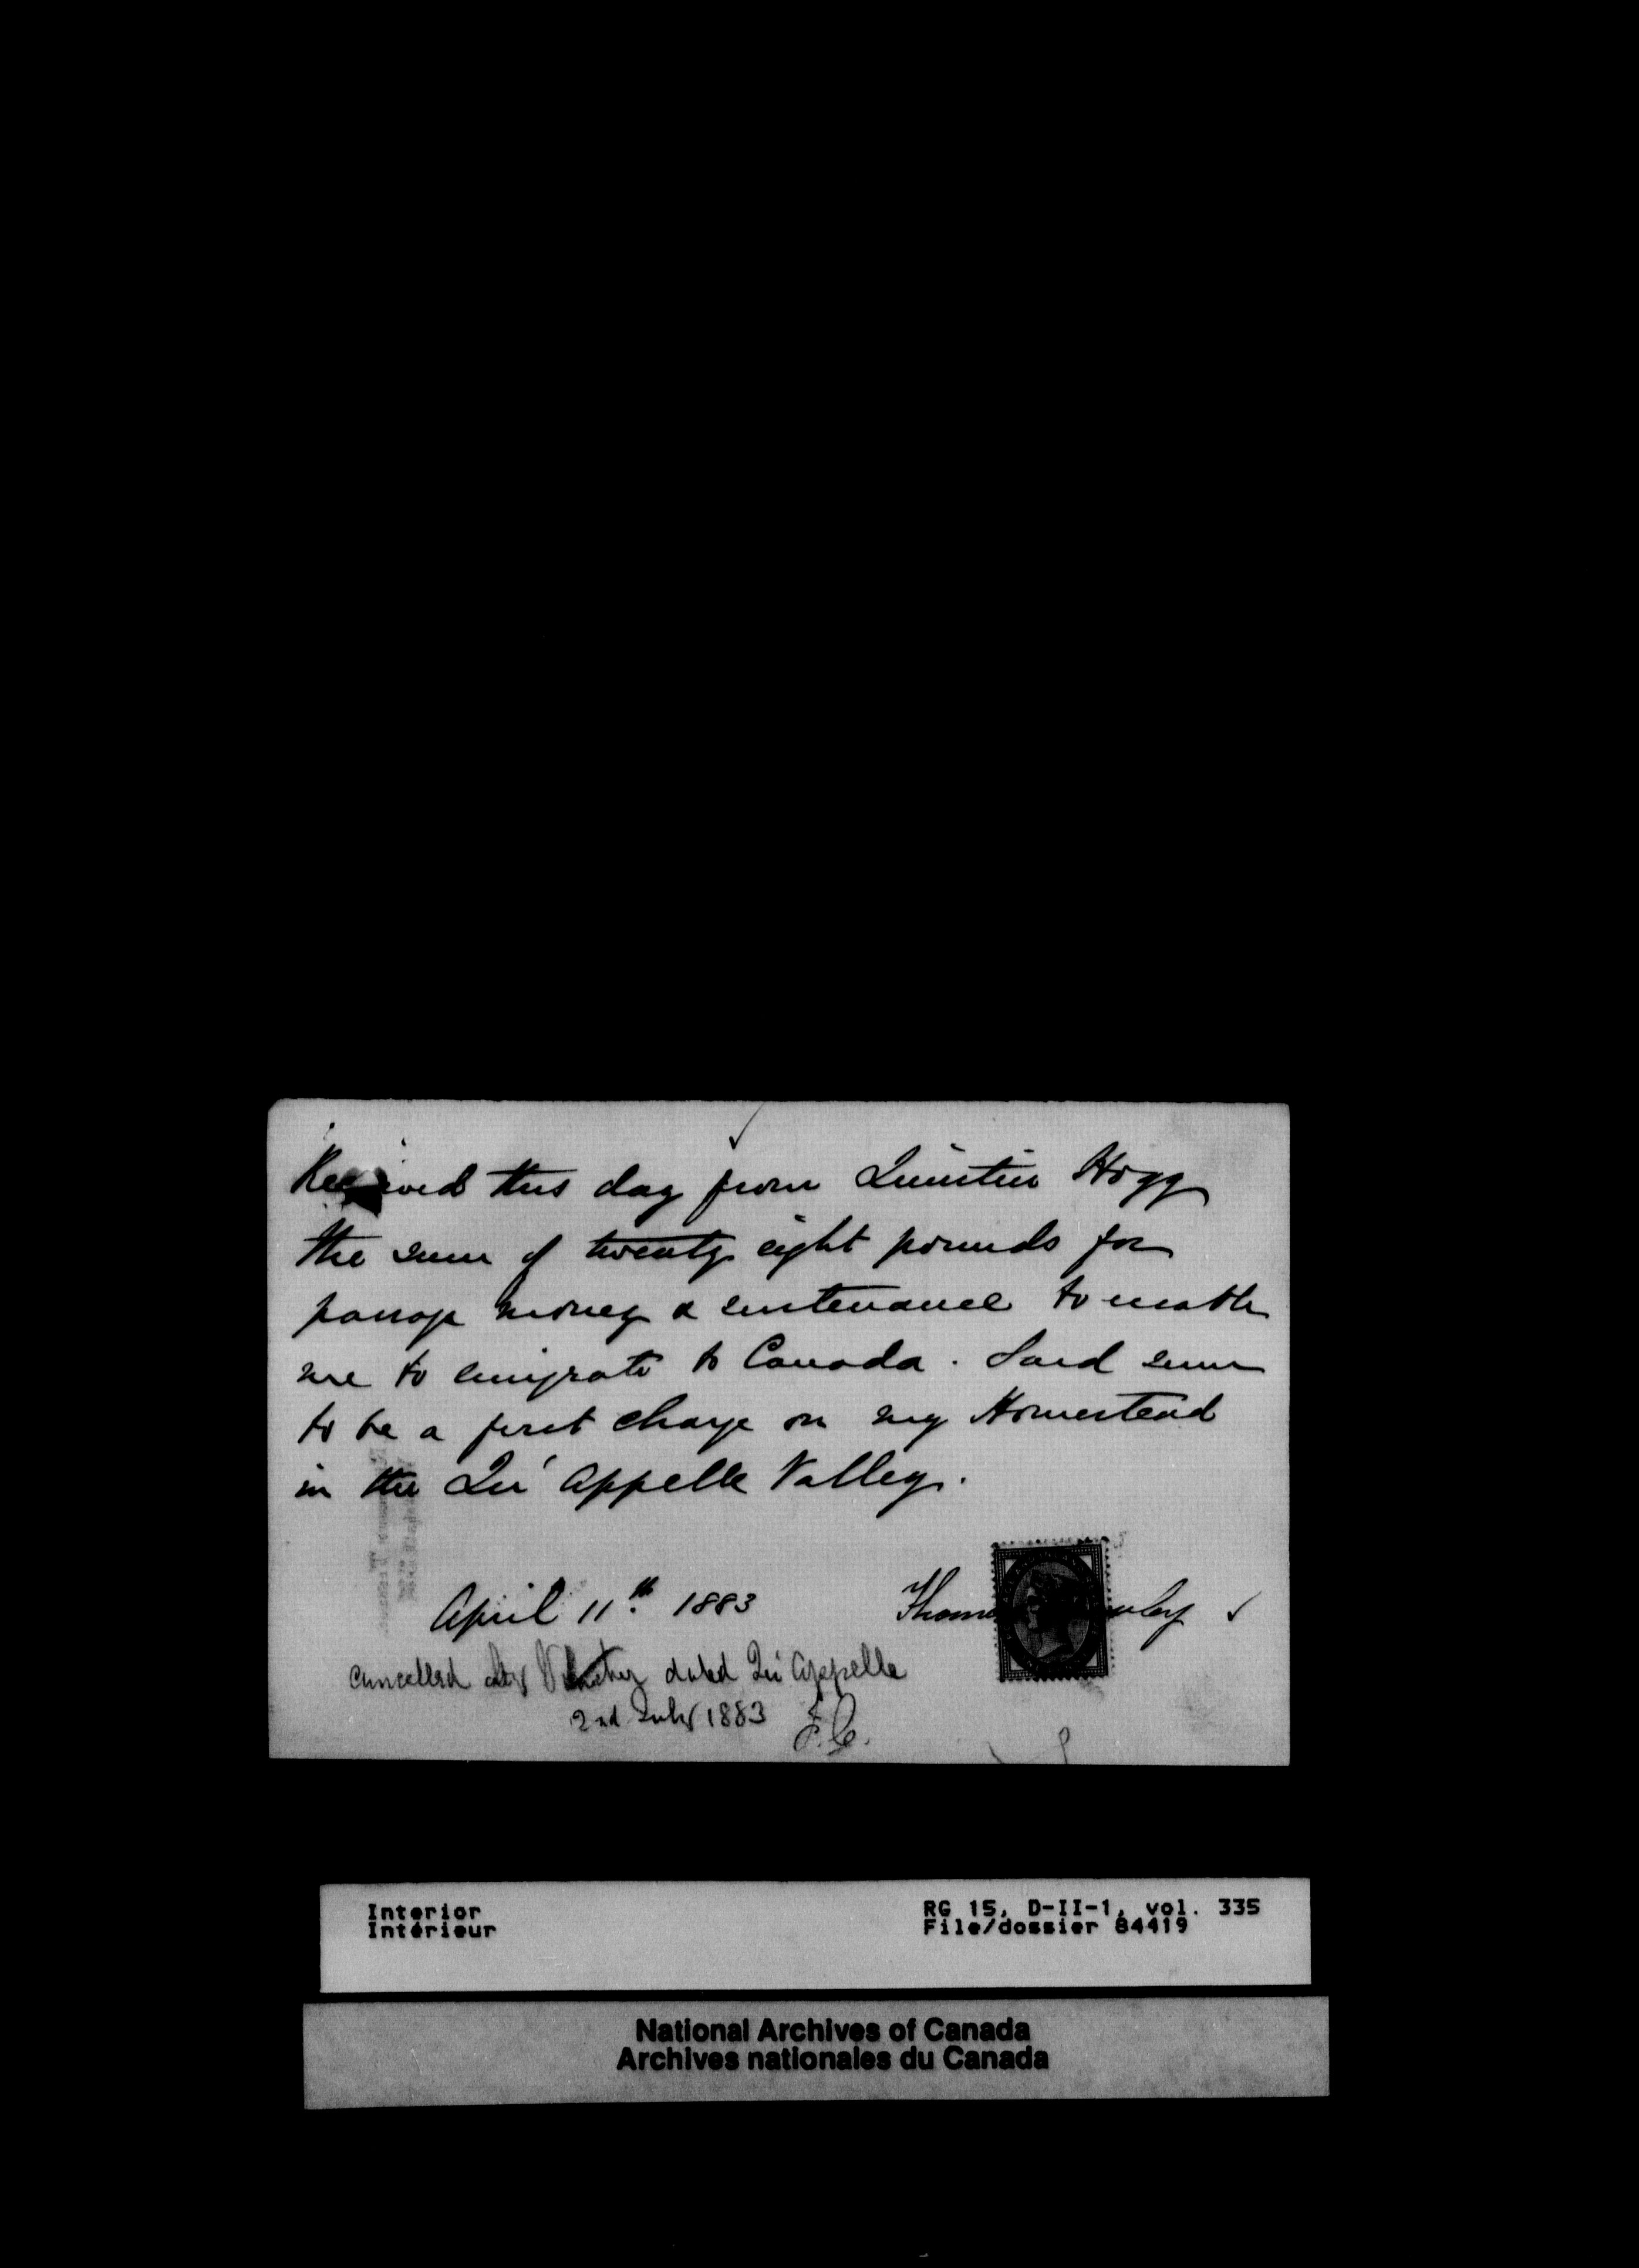 Received this day from Quintin Hogg
the sum of twenty eight pounds for
passage money & sustenance to enable
me to emigrate to Canada. Said sum
to be a first charge on my Homestead
in the Qu' Appelle Valley.
April 11th 1883 Thomas
Cancelled by Voucher dated Qu' Appelle
2nd July 1883 F.C.
Interior RG 15, D-II-1, vol. 335
Intérieur File/dossier 84419
National Archives of Canada
Archives nationales du Canada